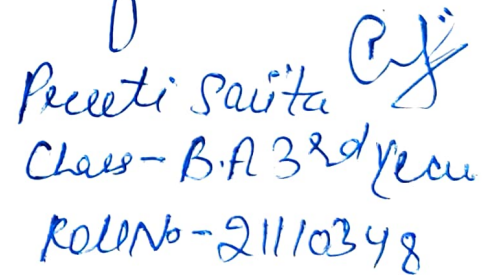 Preeti Savita
Class - B.A 3rd Year
Roll No - 21110348